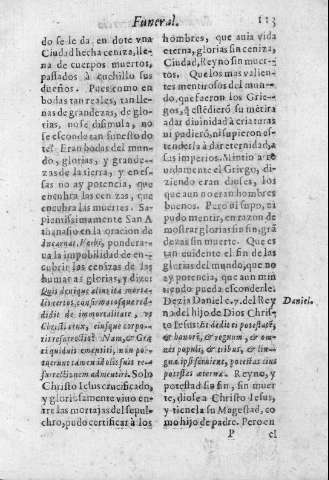 Funeral. 113
do se le da en dote vna
Ciudad hecha ceniza, lle-
na de cuerpos muertos,
passados a cuchillo sus
dueños. Pues como en
bodas tan reales, tan lle-
nas de grandezas, de glo-
rias, no se dissimula, no
se esconde tan funesto do
te? Eran bodas del mun-
do, glorias, y grande-
zas de la tierra, y en es-
sas no ay potencia, que
encubra las cenizas, que
encubra las muertes. Sa-
pientissimamente San A
thanasio en la oracion de
Incarnat. Verbi, pondera-
ua la impossibilidad de en-
cubrir las cenizas de las
humanas glorias, y dize:
Solo
Christo Iesus crucificado,
y gloriosamente viuo en-
tre las mortajas del sepul-
chro, pudo certificar á los
hombres, que auia vida
eterna, glorias sin ceniza,
Ciudad, Reyno sin muer-
tos. Que los mas valien
tes mentirosos del mun-
do, que fueron los Grie-
gos, q estedieró su métira
a dar diuinidad á criaturas
ni padieró, ni supieron es-
tenderla á dar eternidad, a
sus imperios. Mintio atre
uidamente el Griego, di-
ziendo eran dioses, los
que aun no eran hombres
buenos. Pero ni supo, ni
pudo mentir, en razon de
mostrar glorias sin fin, grá
dezas sin muerte. Que es
tan euidente el fin de las
glorias del mundo, que no
ay potencia, que aun min
tiendo pueda esconderle.
Dezia Daniel c. 7. del Rey
na del hijo de Dios Chris-
to Iesus: Et dedit ei potestatẽ,
& honorẽ, & regnum, & om-
nes populi, & tribus, & lin-
guæ ipsi seruient, potestas eius
potestas æterna. Reyno, y
potestad sin fin, sin muer
te, diose a Christo Iesus,
y tienela su Magestad, co
mo hijo de padre. Pero en
Daniel.
P el